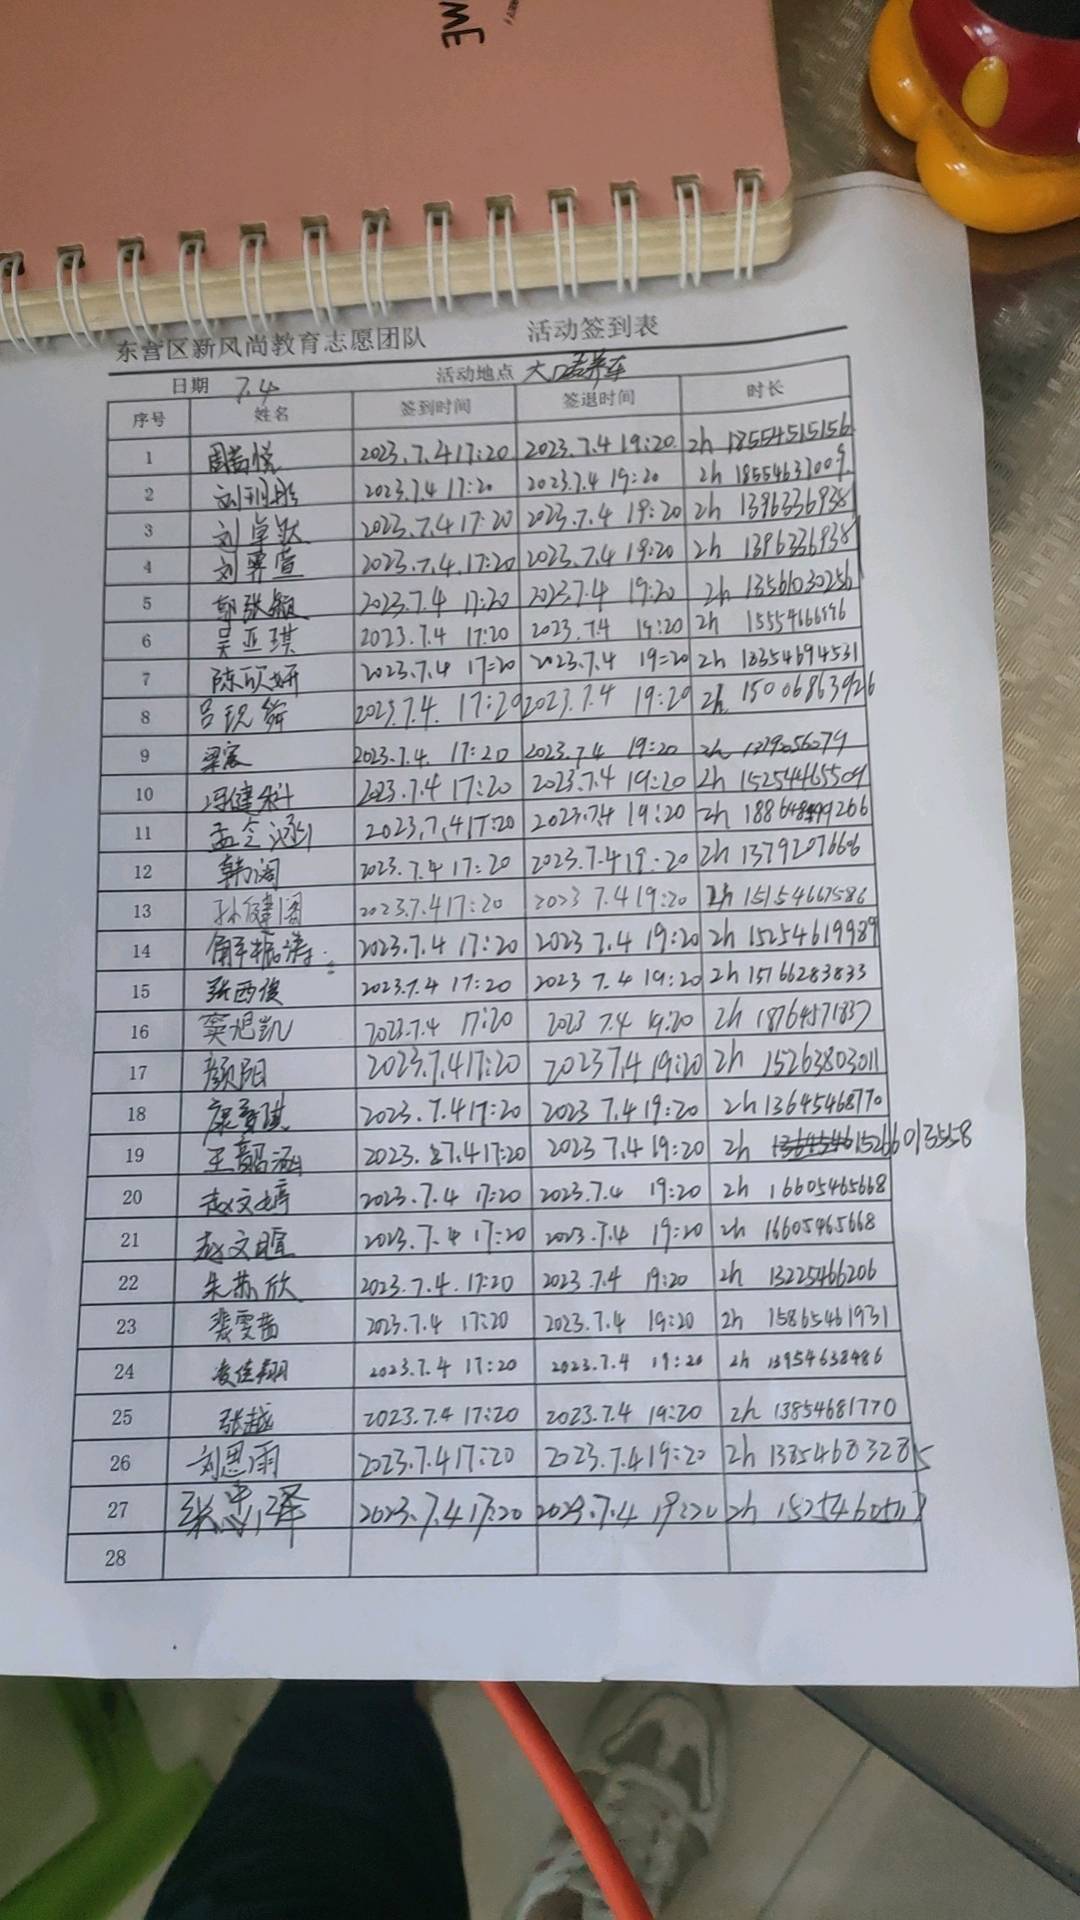 ME
东营区新风尚教育志愿团队 活动签到表
日期 7.4 活动地点 大口
序号 姓名 签到时间 签退时间 时长
1 周尚悦 2023.7.4 17:20 2023.7.4 19:20 2h 18554515156
2 刘玥彤 2023.7.4 17:20 2023.7.4 19:20 2h 18554637009
3 刘卓 2023.7.4 17:20 2023.7.4 19:20 2h 13963369381
4 刘霁萱 2023.7.4 17:20 2023.7.4 19:20 2h 13963369381
5 郭张颖 2023.7.4 17:20 2023.7.4 19:20 2h 13561030256
6 吴亚琪 2023.7.4 17:20 2023.7.4 19:20 2h
7 陈欣妍 2023.7.4 17:20 2023.7.4 19:20 2h 18354694531
8 吕 2023.7.4. 17:20 2023.7.4 19:20 2h 15006863926
9 梁宸 2023.7.4. 17:20 2023.7.4 19:20 2h
10 冯健科 2023.7.4 17:20 2023.7.4 19:20 2h 15254465509
11 孟令涵 2023.7.4 17:20 2023.7.4 19:20 2h
12 韩阔 2023.7.4 17:20 2023.7.4 19:20 2h 13792076606
13 孙健阁 2023.7.4 17:20 2023 7.4 19:20 2h 15154667586
14 解振涛 2023.7.4 17:20 2023 7.4 19:20 2h 15254619989
15 张西俊 2023.7.4 17:20 2023 7.4 19:20 2h 15766283833
16 窦旭凯 2023.7.4 17:20 2023 7.4 19:20 2h 18764571837
17 颜阳 2023.7.4 17:20 2023 7.4 19:20 2h 15263803011
18 康 琪 2023.7.4 17:20 2023 7.4 19:20 2h 13645468770
19 王韶涵 2023.7.4 17:20 2023 7.4 19:20 2h 15266013558
20 赵文婷 2023.7.4 17:20 2023.7.4 19:20 2h 16605465668
21 赵文暄 2023.7.4 17:20 2023.7.4 19:20 2h 16605465668
22 朱苏欣 2023.7.4. 17:20 2023.7.4 19:20 2h 13225466206
23 裴雯茜 2023.7.4 17:20 2023.7.4 19:20 2h 15865461931
24 凌佳翔 2023.7.4 17:20 2023.7.4 19:20 2h 13954638486
25 张越 2023.7.4 17:20 2023.7.4 19:20 2h 13854681770
26 刘思雨 2023.7.4 17:20 2023.7.4 19:20 2h 13854683285
27 张忠泽 2023.7.4 17:20 2023.7.4 19:20 2h
28